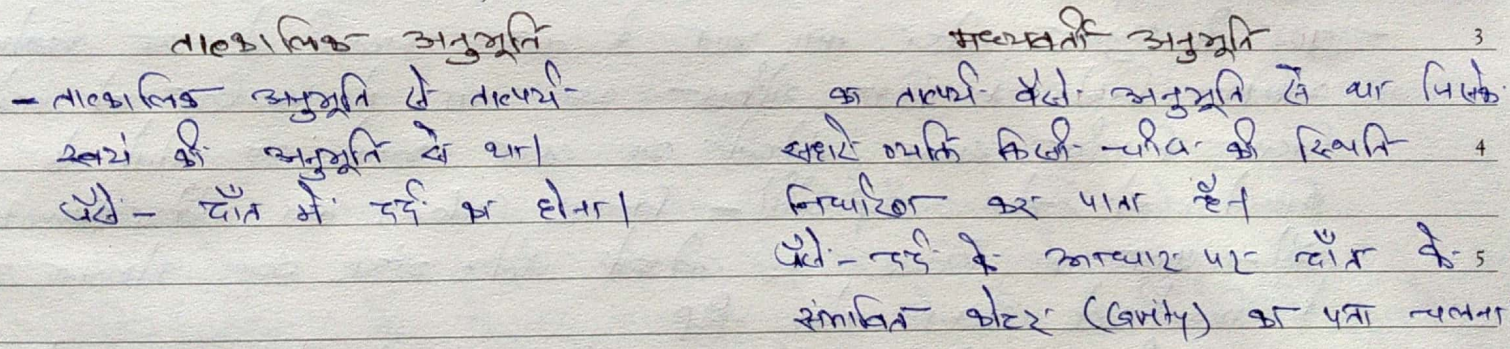 तात्कालिक अनुभूति
- तात्कालिक अनुभूति से तात्पर्य
स्वयं की अनुभूति से था।
जैसे - दाँत में दर्द का होना।
मध्यवर्ती अनुभूति
का तात्पर्य वैसे अनुभूति से था जिसके
सहारे व्यक्ति किसी चीज की स्थिति
निर्धारित कर पाता है।
जैसे - दर्द के आधार पर दाँत के
संभावित कोटर (Cavity) का पता चलना
3
4
5